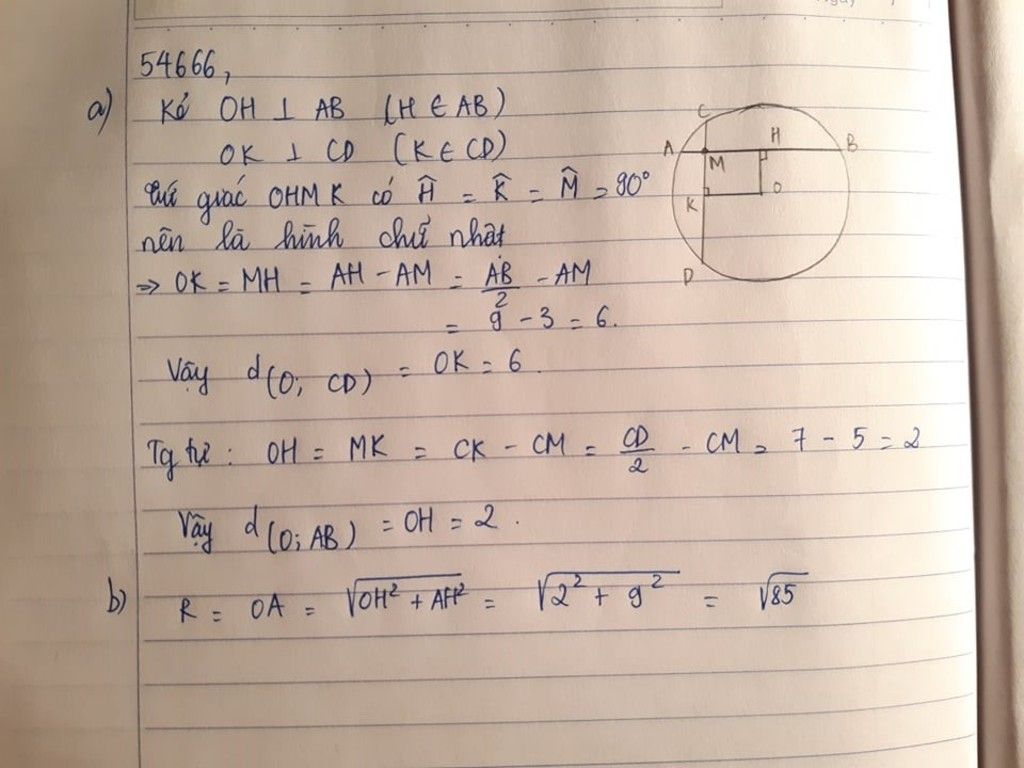 54666,
a) Kẻ OH ⊥ AB (H ∈ AB)
OK ⊥ CD (K ∈ CD)
tứ giác OHMK có Ĥ = K̂ = M̂ = 90°
nên là hình chữ nhật
⇒ OK = MH = AH - AM = AB/2 - AM
= 9 - 3 = 6.
Vậy d(O; CD) = OK = 6.
Tg tự: OH = MK = CK - CM = CD/2 - CM = 7 - 5 = 2
Vậy d(O; AB) = OH = 2.
b) R = OA = √(OH² + AH²) = √(2² + 9²) = √85
C
A
M
H
B
K
O
D